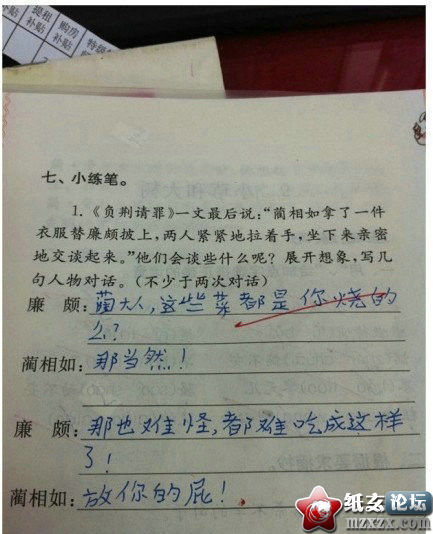 提租
补贴
购房
补贴
特级
七、小练笔。
1.《负荆请罪》一文最后说:“蔺相如拿了一件
衣服替廉颇披上,两人紧紧地拉着手,坐下来亲密
地交谈起来。”他们会谈些什么呢?展开想象,写几
句人物对话。(不少于两次对话)
廉 颇:蔺大人,这些菜都是你烧的
么?
蔺相如:那当然!
廉 颇:那也难怪,都难吃成这样
了!
蔺相如:放你的屁!
纸玄论坛
www.mzxzx.com